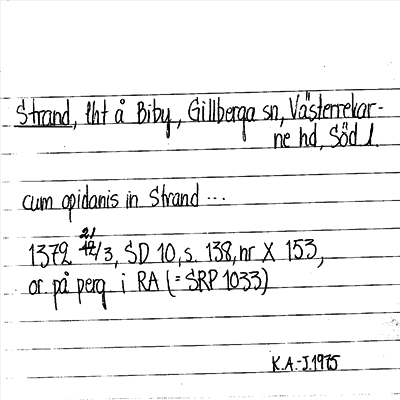 Strand, lht å Biby, Gillberga sn, Västerrekar-
ne hd, Söd l.
cum opidanis in Strand ...
21
1372 12/3, SD 10, s. 138, nr X 153,
or på perg i RA (= SRP 1033)
K.A.-J. 1975